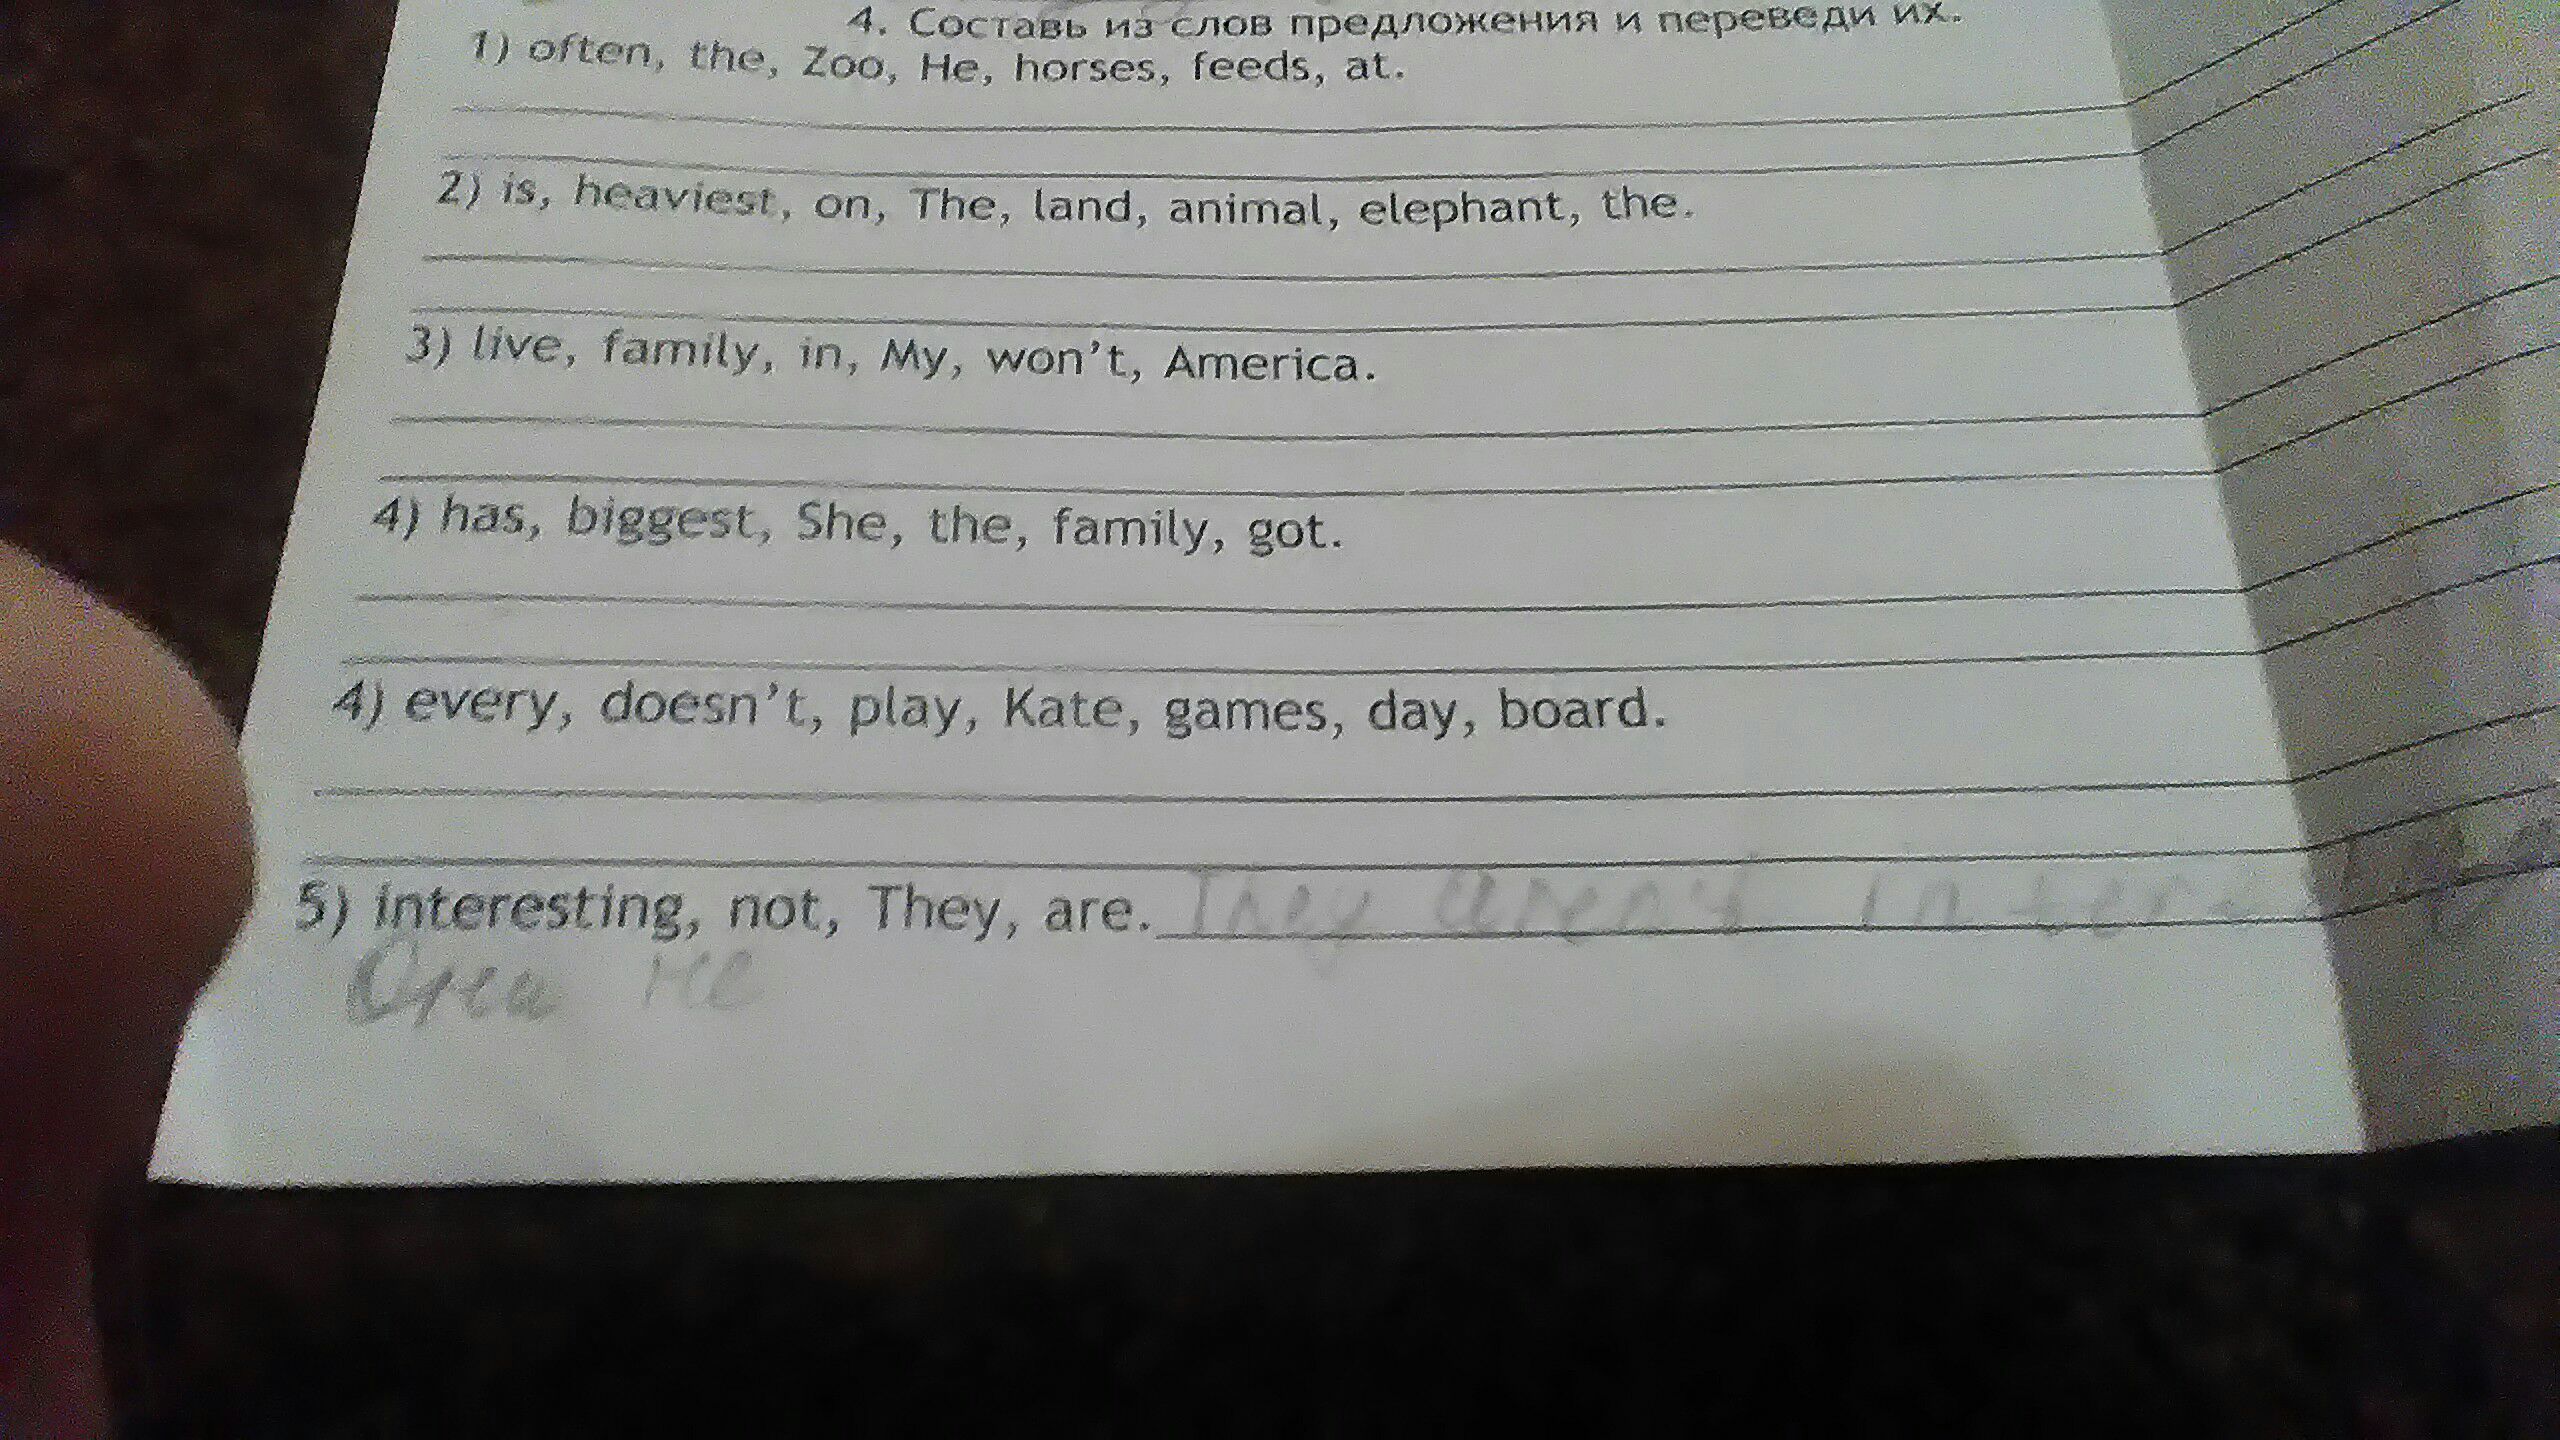 4. Составь из слов предложения и переведи их.
1) often, the, Zoo, He, horses, feeds, at.
2) is, heaviest, on, The, land, animal, elephant, the.
3) live, family, in, My, won't, America.
4) has, biggest, She, the, family, got.
4) every, doesn't, play, Kate, games, day, board.
5) interesting, not, They, are. They aren't inter
Они не